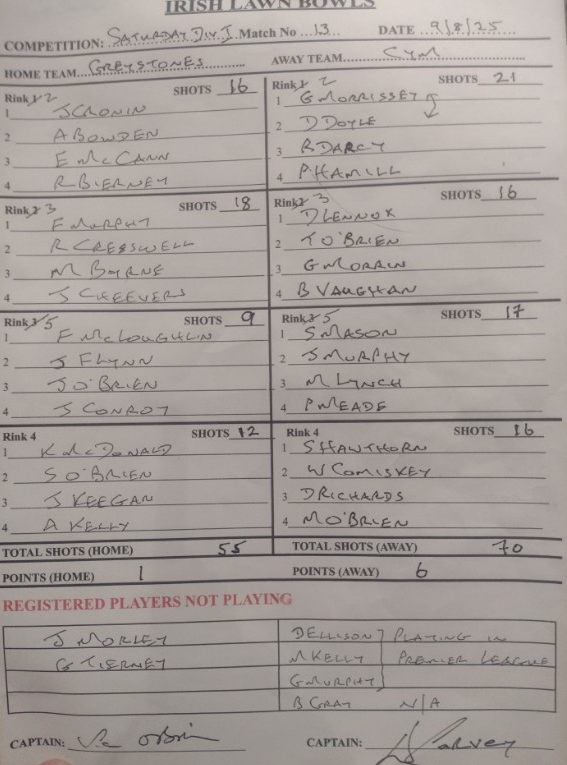 IRISH LAWN BOWLS
COMPETITION: SATURDAY DIV I Match No 13 DATE 9/8/25
HOME TEAM GREYSTONES AWAY TEAM CYM
Rink 2 SHOTS 16
1 J CRONIN
2 A BOWDEN
3 E McCANN
4 R BIERNEY
Rink 2 SHOTS 21
1 G MORRISSEY
2 D DOYLE
3 R DARCY
4 P HAMILL
Rink 3 SHOTS 18
1 F MURPHY
2 R CRESSWELL
3 M BYRNE
4 J CHEEVERS
Rink 3 SHOTS 16
1 D LENNOX
2 T O'BRIEN
3 G MORRIN
4 B VAUGHAN
Rink 3 5 SHOTS 9
1 F McLOUGHLIN
2 J FLYNN
3 J O'BRIEN
4 J CONROY
Rink 3 5 SHOTS 17
1 S MASON
2 J MURPHY
3 M LYNCH
4 P MEADE
Rink 4 SHOTS 12
1 K McDONALD
2 S O'BRIEN
3 J KEEGAN
4 A KELLY
Rink 4 SHOTS 16
1 S HAWTHORN
2 W COMISKEY
3 D RICHARDS
4 M O'BRIEN
TOTAL SHOTS (HOME) 55 TOTAL SHOTS (AWAY) 70
POINTS (HOME) 1 POINTS (AWAY) 6
REGISTERED PLAYERS NOT PLAYING
J MORLEY D ELLISON PLAYING IN
G TIERNEY M KELLY PREMIER LEAGUE
G MURPHY
B GRAY N/A
CAPTAIN: O'Brien CAPTAIN: Harvey